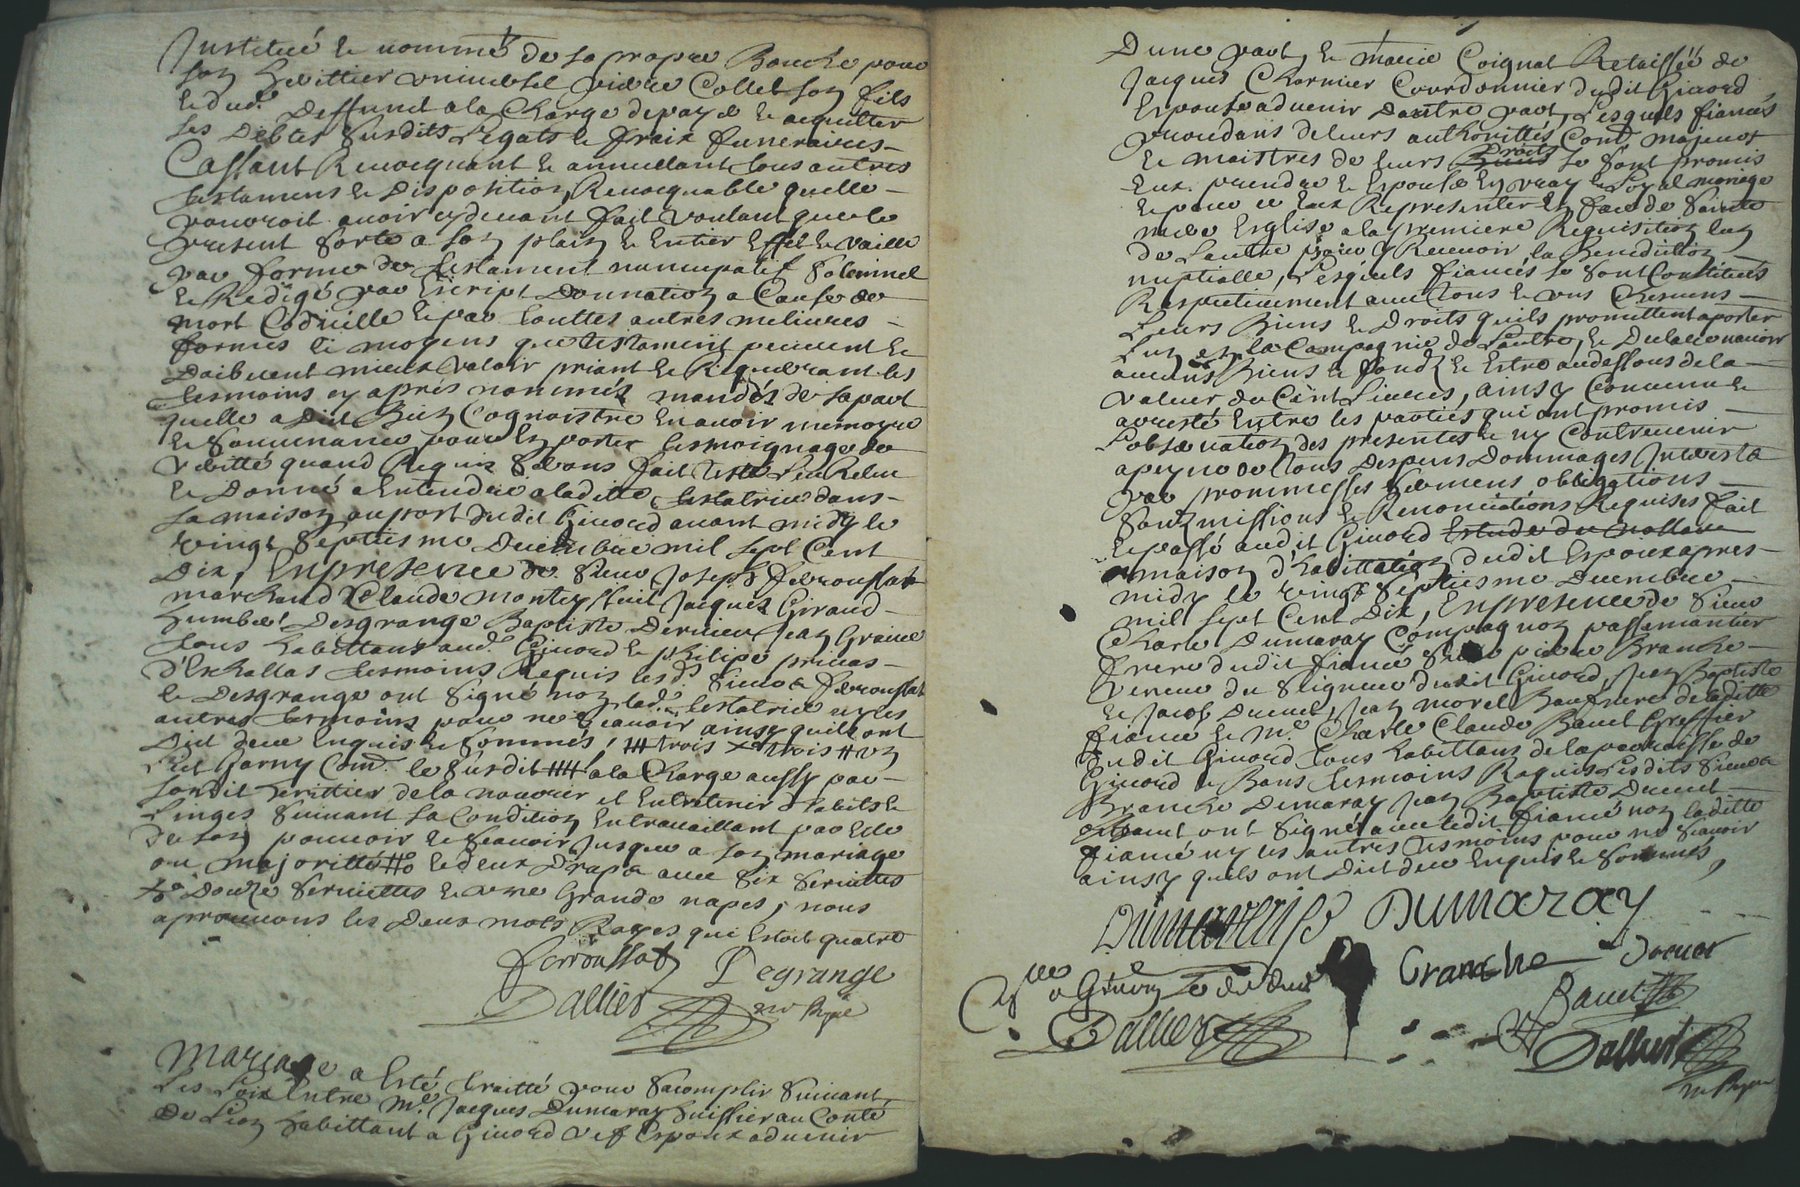 Institué et nommé de sa propre Bouche pour
son herittier universel pierre Collet son fils
et dud. deffunt a la Charge de payer et acquitter
ses debtes susdits Legats et fraix funeraires
Cassant Revocquant et annullant tous autres
testamens et disposition Revocquable quelle
pourroit avoir cy devant fait voulant que le
present sorte a son plain et Entier Effet et vaille
par forme de testament nuncupatif solemnel
et Redigé par Escript donnation a Cause de
mort Codicille et par touttes autres melieures
formes et moyens que testament peuvent et
doibvent mieux valoir priant et Requerant les
tesmoins cy apres nommés mandés de sa part
quelle a dict Bien Cognoistre En avoir memoyre
et souvenance pour En porter tesmoignage de
veritté quand Requis seront fait leu Releu
et donné a Entendre a laditte testatrice dans
sa maison au port dudit Givord avant midy le
vingt septiesme decembre mil sept Cent
dix, En presence de sieur Joseph ferroussat
marchand Claude Jacques Giraud
humbert desgrange Baptiste Jean
tous habittans aud. Givord et philipe
d'Eschallas tesmoins Requis lesd. sieurs ferroussat
et Desgrange ont signé non lad. testatrice ny les
autres tesmoins pour ne scavoir ainsy quils ont
dict deux Enquis et sommés, trois trois un
le susdit a la Charge aussy par
sondit heritier de la nourrir et Entretenir d'habits et
Linges suivant sa Condition En travaillant par Elle
de son pouvoir et scavoir Jusque a son mariage
ou majoritté et deux draps avec six serviettes
douze serviettes et une Grande napes, nous
aprouvons les deux mots Rayes qui Estoit quatre
ferroussat Degrange
Dallier
Mariage a Esté traitté pour sacomplir suivant
Les Loix Entre Me. Jacques Dumaray huissier au Conté
de Lion habittant a Givord vef Espoux advenir
Dune part, et marie Coignat Relaissée de
Jacques Charnier Courdonnier dudit Givord
Espouse advenir Dautre part, Lesquels fiancés
procedans de leurs authorittés Comt. majeurs
et maistres de leurs Droits se sont promis
Eux prendre et Espouser En vray et Loyal mariage
et pour ce Eux Representer En face de sainte
mere Esglise a la premiere Requisition lun
de lautre pour y Recevoir la Benediction
nuptialle, Lesquels fiancés se sont Constitués
Respectivement avec tous et uns Chesuns
Leurs Biens et Droits quils promettent aporter
Lun en la Compagnie de Lautre, et declare navoir
aucuns Biens et fondz et Estre au dessous de la
valeur de Cent Livres, ainsy Convenu et
arresté Entre les parties qui ont promis
Lobservation des presentes et ny Contrevenir
a peyne de tous Despens Dommages Interests
par promesses sermens obligations
soubzmissions et Renonciations Requises fait
et passé audit Givord Estude du notaire
maison d'habittation dudit Espoux apres
midy le vingt septiesme decembre
mil sept Cent Dix, En presence de sieur
Charle Dumaray Compagnon passemantier
frere dudit fiancé sieur pierre Branche
du seigneur dudit Givord, Jean Baptiste
et Jacob Ducret, Jean morel Beaufrere de laditte
fiancé et Me. Charle Claude Bauet Greffier
dudit Givord tous habittans de la parroisse de
Givord et Bans tesmoins Requis Lesdits sieurs
Branche Dumaray Jean Baptiste Ducret
ont signé avec ledit fiancé non laditte
fiancé ny les autres tesmoins pour ne scavoir
ainsy quils ont Dict de ce Enquis et sommés,
Dumaray
Branche Ducret
Bauet
Dallier
Dallier